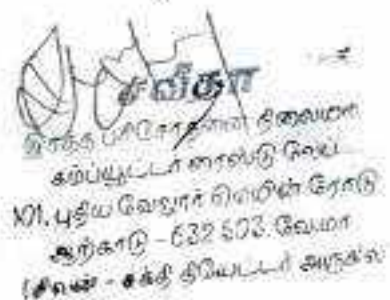 சவீதா
இரத்த பரிசோதனை நிலையம்
கம்ப்யூட்டர் லேப்
101, புதிய வேலூர் மெயின் ரோடு
ஆற்காடு - 632 503. வே.மா
(சிவன் - சக்தி தியேட்டர் அருகில்